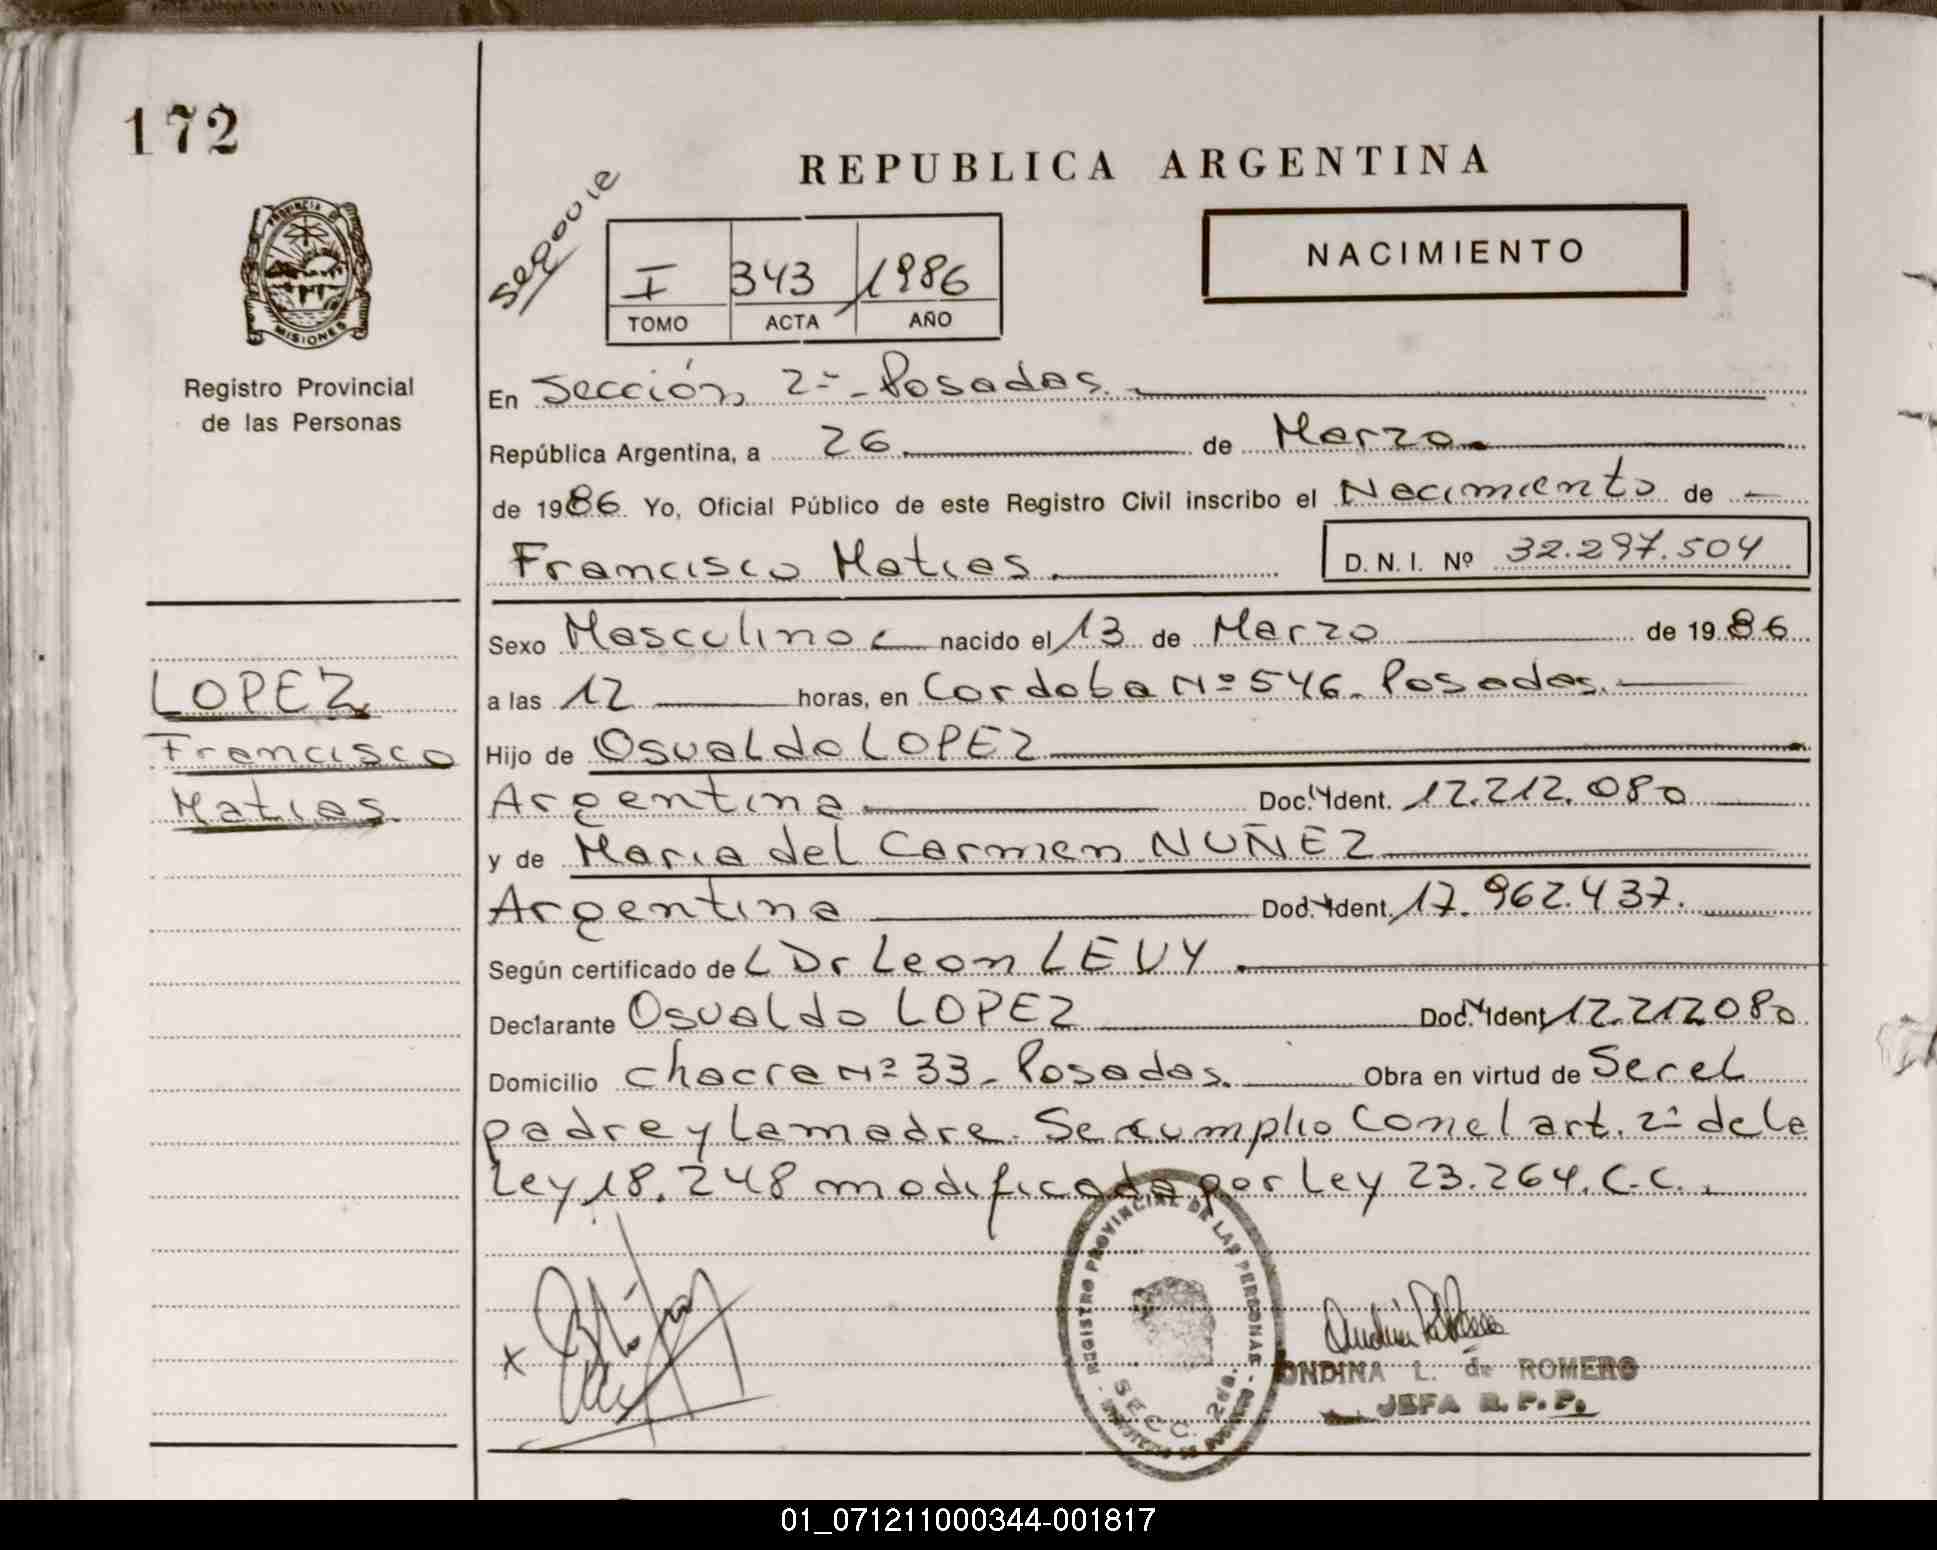 172
REPUBLICA ARGENTINA
NACIMIENTO
I 343 1986
TOMO ACTA AÑO
PROVINCIA DE
MISIONES
Registro Provincial
de las Personas
En Sección 2ª - Posadas.
República Argentina, a 26 de Marzo
de 1986 Yo, Oficial Público de este Registro Civil inscribo el Nacimiento de
Francisco Matias D. N. I. Nº 32.297.504
Sexo Masculino nacido el 13 de Marzo de 1986
a las 12 horas, en Cordoba Nº 546. Posadas.
LOPEZ
Francisco
Matias
Hijo de Osvaldo LOPEZ
Argentina Doc. Ident. 12.212.080
y de Maria del Carmen NUÑEZ
Argentina Doc. Ident. 17.962.437.
Según certificado del Dr Leon LEVY
Declarante Osvaldo LOPEZ Doc. Ident. 12.212.080
Domicilio Chacra Nº 33 - Posadas. Obra en virtud de Ser el
padre y la madre. Se cumplio con el art. 2º de la
Ley 18.248 modificada por Ley 23.264. C.C.
REGISTRO PROVINCIAL DE LAS PERSONAS
SECC. 2da.
ONDINA L. de ROMERO
JEFA R. P. P.
01_071211000344-001817